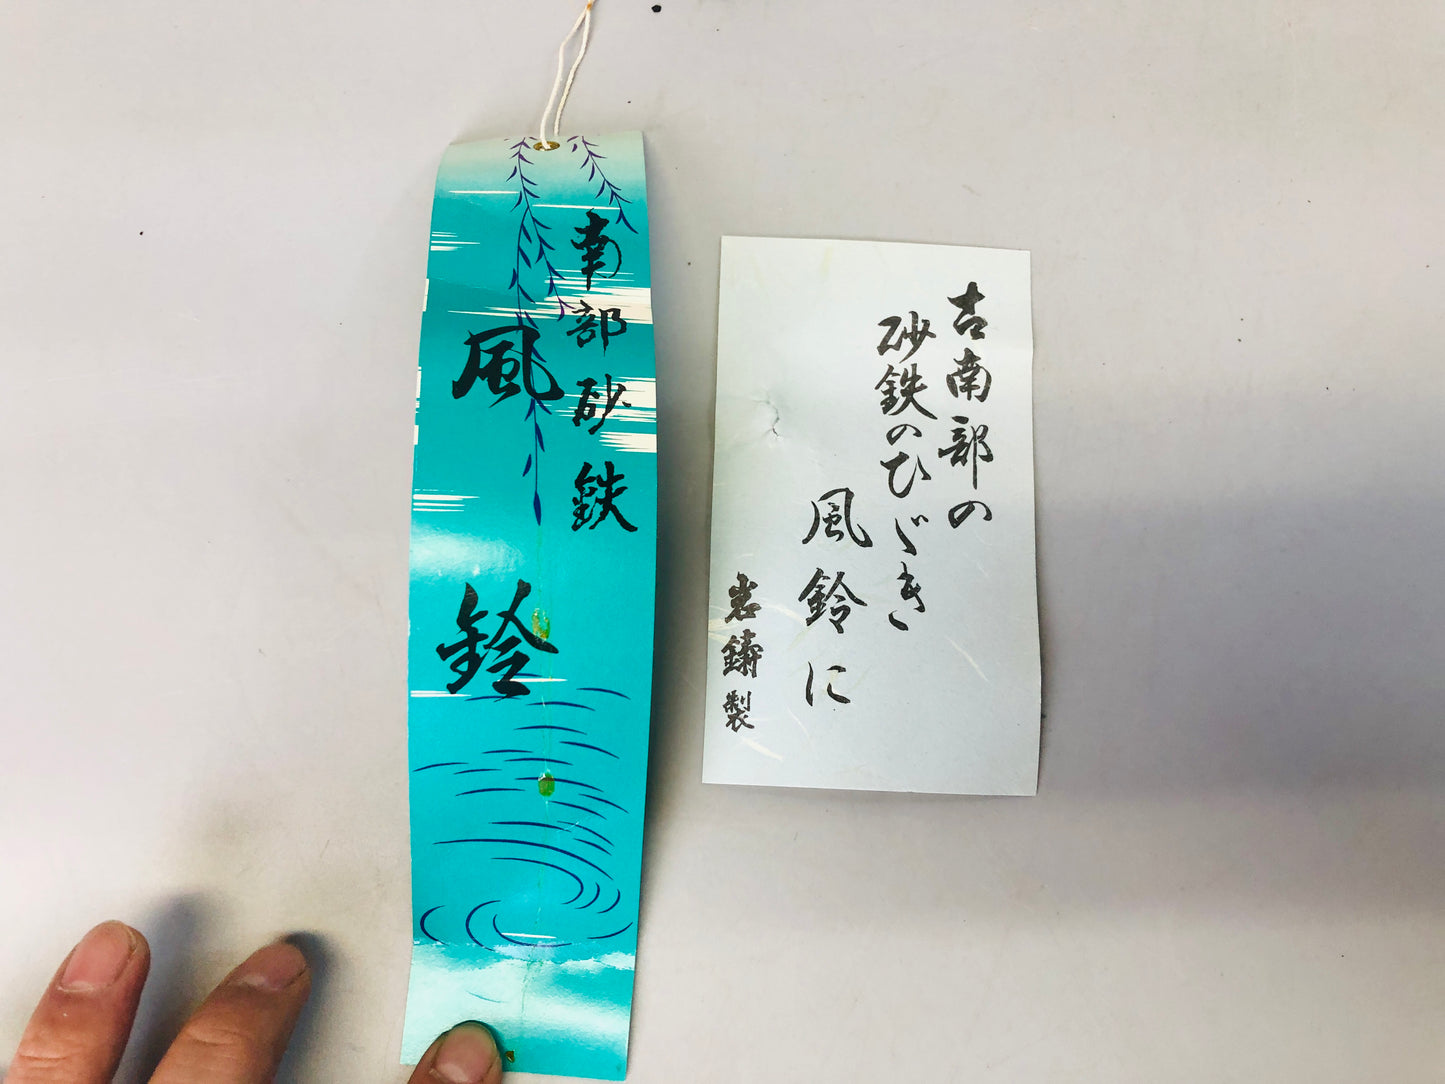 南部砂鉄
風鈴
古南部の
砂鉄のひゞき
風鈴に
岩鋳製